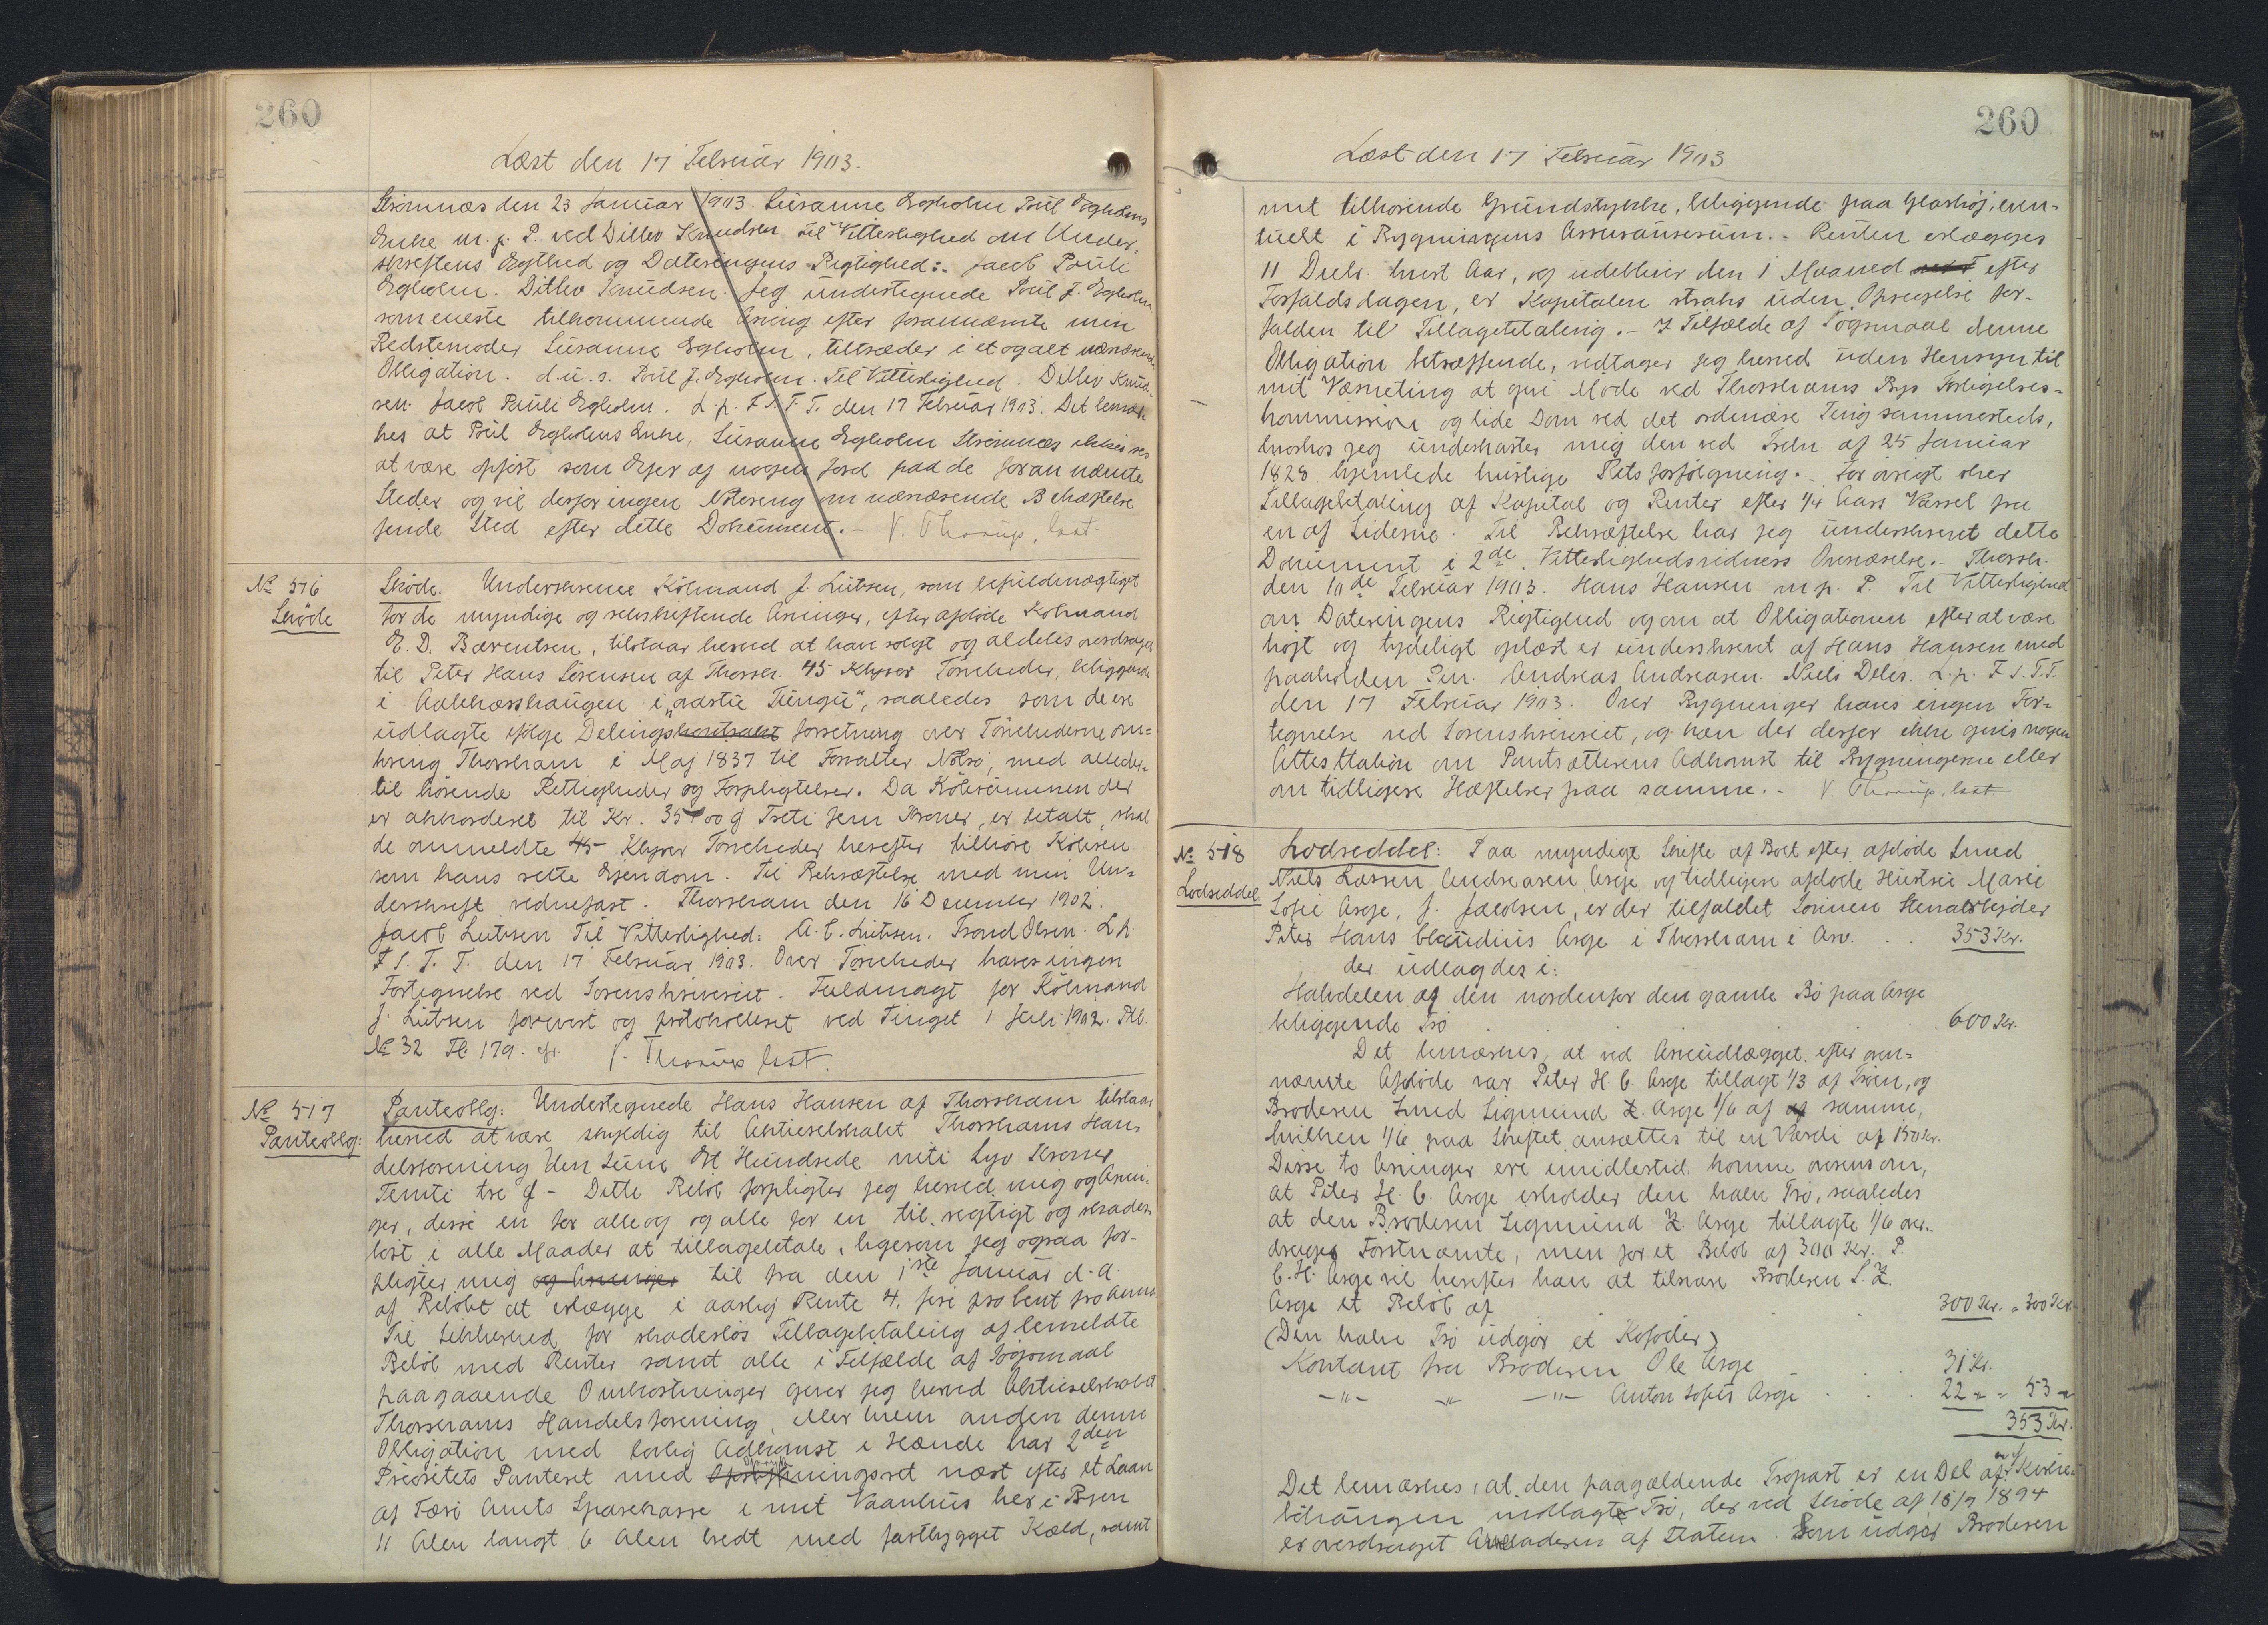 260
Læst den 17 Februar 1903.
Strømnæs den 23 Januar 1903. Susanne Egholm Poul Egholms
Enke m. p. P. ved Ditlev Knudsen Til Vitterlighed om Under-
skriftens Ægthed og Dateringens Rigtighed:. Jacob Pauli
Egholm. Ditlev Knudsen. Jeg undertegnede Poul J. Egholm
som eneste tilkommende Arving efter forannævnte min
Bedstemoder Susanne Egholm, tiltræder i et og alt nærværende
Obligation. d. u. s. Poul J. Egholm. Til Vitterlighed. Ditlev Knud-
sen. Jacob Pauli Egholm. L. p. F. S. T. T. den 17 Februar 1903. Det bemær-
kes at Poul Egholms Enke, Susanne Egholm Strømnæs ikke ses
at være opført som Ejer af nogen Jord paa de foran nævnte
Steder og vil derfor ingen Notering om nærværende Behæftelse
finde Sted efter dette Dokument.- V. Thorup, cst.
No 516
Skøde
Skøde. Underskrevne Købmand J. Lützen, som befuldmægtiget
for de myndige og selvskiftende Arvinger, efter afdøde Købmand
E. D. Bærentsen, tilstaar herved at have solgt og aldeles overdraget
til Peter Hans Sørensen af Thorsh. 45 Klyver Tørveheder, beliggende
i Aakkæsshaugen i "aastu Tungu", saaledes som de ere
udlagte ifølge Delingskontrakt forretning over Tørvehederne om-
kring Thorshavn i Maj 1837 til Forvalter Nolsø, med alleder-
til hørende Rettigheder og Forpligtelser. Da Købesummen der
er akkorderet til Kr. 35 00 ø Treti fem Kroner, er betalt, skal
de anmeldte 45 Klyver Tørveheder herefter tilhøre Køberen
som hans rette Ejendom. Til Bekræftelse med min Un-
derskrift vedhefast. Thorshavn den 16 December 1902.
Jacob Lützen Til Vitterlighed: A. C. Lützen. Trond Olsen. L. p.
F. S. T. T. den 17 Februar 1903. Over Tørveheder haves ingen
Fortegnelse ved Sorenskriveriet. Fuldmagt for Købmand
J. Lützen forevist og protokolleret ved Tinget 1 Juli 1902. Ptk.
No 32 Fl. 179. cfr. V. Thorup cst.
No 517
Panteoblg:
Panteoblg: Undertegnede Hans Hansen af Thorshavn tilstaar
herved at være skyldig til Aktieselskabet Thorshavns Han-
delsforening den Sum Et Hundrede niti Syv Kroner
Femti tre ø - Dette Beløb forpligter jeg herved mig og Arvin-
ger, disse en for alle og og alle for en til, rigtigt og skades-
løst i alle Maader at tilbagebetale, ligesom jeg ogsaa for-
pligter mig og Arvinger til fra den 1ste Januar d. A.
af Beløbet at erlægge i aarlig Rente 4, fire pro Cent pro anno
Til Sikkerhed for skadesløs Tilbagebetaling af bemeldte
Beløb med Renter samt alle i Tilfælde af Søgsmaal
paagaaende Omkostninger giver jeg herved Aktieselskabet
Thorshavns Handelsforening, eller hvem anden denne
Obligation med lovlig Adkomst i Hænde har 2den
Prioritets Panteret med Oprykningsret næst efter et Laan
af Færø Amts Sparekasse i mit Vaanhus her i Byen
11 Alen langt 6 Alen bredt med fastbygget Kæld, samt
260
Læst den 17 Februar 1903
mit tilhørende Grundstykke, beliggende paa Glarhøj, even-
tuelt i Bygningens Assuransesum.- Renten erlægges
11 Decbr. hvert Aar, og udebliver den 1 Maaned efter
Forfaldsdagen, er Kapitalen straks uden Opsigelse for-
falden til Tilbagebetaling.- I Tilfælde af Søgsmaal denne
Obligation betræffende, vedtager jeg herved uden Hensyn til
mit Værneting at give Møde ved Thorshavns Bys Forligelses-
kommission og lide Dom ved det ordinære Ting sammesteds,
hvorhos jeg underkaster mig den ved Frdn. af 25 Januar
1828 hjemlede hurtige Retsforfølgning.- For øvrigt sker
Tilbagebetaling af Kapital og Renter efter 1/4 Aars Varsel fra
en af Siderne. Til Bekræftelse har jeg underskrevet dette
Dokument i 2de Vitterlighedsvidners Overværelse.- Thorsh.
den 10de Februar 1903. Hans Hansen m. p. P. Til Vitterlighed
om Dateringens Rigtighed og om at Obligationen efter at være
højt og tydeligt oplæst er underskrevet af Hans Hansen med
paaholden Pen. Andreas Andreasen. Niels Debes. L. p. F. S. T. T.
den 17 Februar 1903. Over Bygninger haves ingen For-
tegnelse ved Sorenskriveriet, og kan der derfor ikke gives nogen
Attestation om Pantsætterens Adkomst til Bygningerne eller
om tidligere Hæftelser paa samme.- V. Thorup, cst.
No 518
Lodseddel.
Lodseddel: Paa myndigt Skifte af Boet efter afdøde Smed
Niels Lassen Andreasen Arge og tidligere afdøde Hustru Marie
Sofie Arge, f. Jacobsen, er der tilfaldet Sønnen Stenarbejder
Peter Hans Claudius Arge i Thorshavn i Arv. . . 353 Kr.
der udlagdes i:
Halvdelen af den nordenfor den gamle Bø paa Arge
beliggende Trø . . . . . 600 Kr.
Det bemærkes, at ved Arveudlægget efter oven-
nævnte Afdøde var Peter H. C. Arge tillagt 1/3 af Trøen, og
Broderen Smed Sigmund Z. Arge 1/6 af af samme,
hvilken 1/6 paa Skiftet ansættes til en Værdi af 150 Kr.
Disse to Arvinger ere imidlertid komne overens om,
at Peter H. C. Arge erholder den halve Trø, saaledes
at den Broderen Sigmund Z. Arge tillagte 1/6 over-
drages Førstnævnte, men for et Beløb af 300 Kr. P.
C. H. Arge vil herefter have at tilsvare Broderen S. Z.
Arge et Beløb af 300 Kr. = 300 Kr.
(Den halve Trø udgør et Kofoder)
Kontant fra Broderen Ole Arge . . 31 Kr.
-"- -"- -"- Anton Sofus Arge . . . 22 - = 53 -
353 Kr.
Det bemærkes, at den paagældende Trøpart er en Del af Kirkin-
bøhaugen indlagte Trø, der ved Skøde af 18/9 1894
er overdraget Arveladeren af Staten. Som udgør Broderen